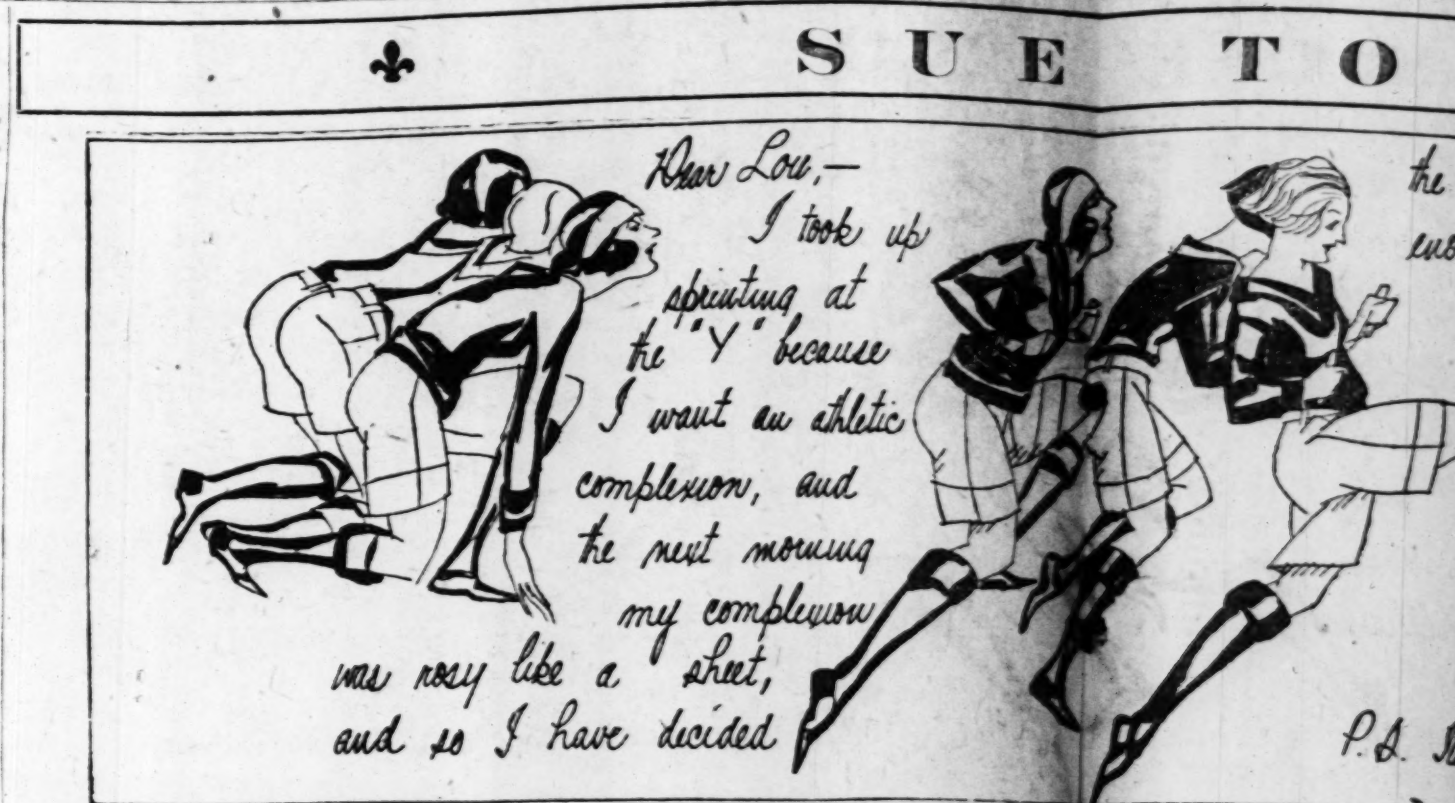 SUE TO
Dear Lou,—
I took up
sprinting at
the "Y" because
I want an athletic
complexion, and
the next morning
my complexion
was rosy like a sheet,
and so I have decided
the
P.S.